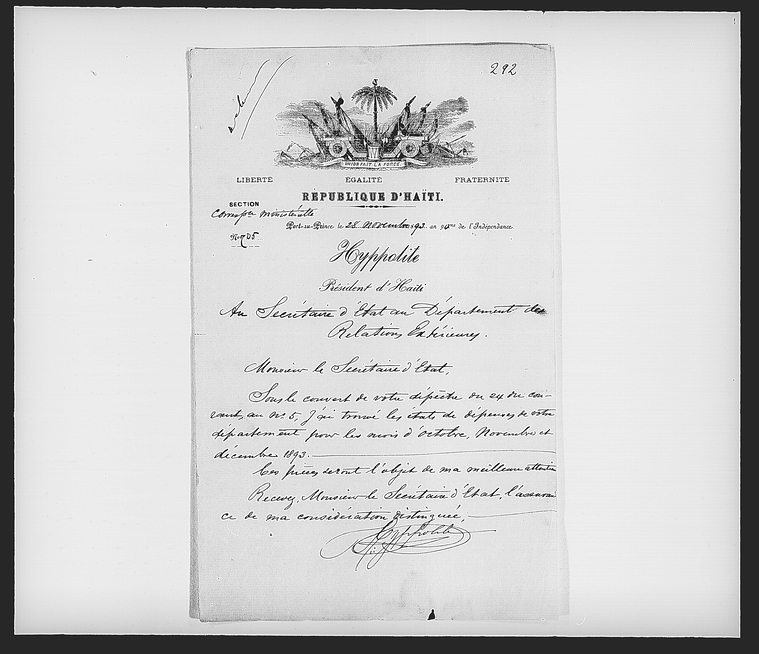 292
UNION FAIT LA FORCE
LIBERTÉ ÉGALITÉ FRATERNITÉ
RÉPUBLIQUE D'HAÏTI.
SECTION
Port-au-Prince le 28 Novembre 1893. an 90me de l'Indépendance
No 705
Hyppolite
Président d'Haïti
Au Secrétaire d'Etat au Département des
Relations Extérieures.
Monsieur le Secrétaire d'Etat,
Sous le couvert de votre dépêche du 24 du cou-
rant, au No 5, J'ai trouvé les états de dépenses de votre
département pour les mois d'Octobre, Novembre et
décembre 1893.
Ces pièces seront l'objet de ma meilleure attention
Recevez, Monsieur le Secrétaire d'Etat, l'assuran
ce de ma considération distinguée.
Hyppolite